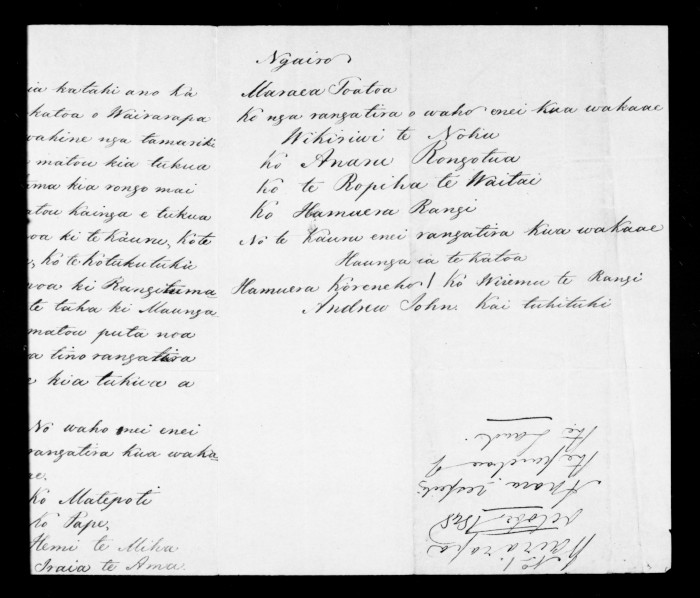 ia katahi ano ka
katoa o Wairarapa
wahine nga tamariki
matou kia tukua
ma kia rongo mai
atou kainga e tukua
noa ki te Kauru, ko te
, ko te kotukutuku
noa ki Rangituma-
te taha ki Maunga
matou puta noa
a tino rangatira
kia tukua a
No waho mei enei
rangatira kua waka-
ae.
Ko Matepoti
Ko Pape,
Hemi te Miha
Iraia te Ama.
Ngairo
Maraea Toatoa
Ko nga rangatira o waho enei kua wakaae
Wikiriwi te Nohu
Ko Anaru Rongotua
Ko te Ropiha te Waitai
Ko Hamuera Rangi
No te Kauru enei rangatira kua wakaae
Haunga ia te Katoa
Hamuera Koreneho! Ko Wiremu te Rangi
Andrew John. Kai tuhituhi
No 1.
Wairarapa
October 1848
the purchase of
the Land.